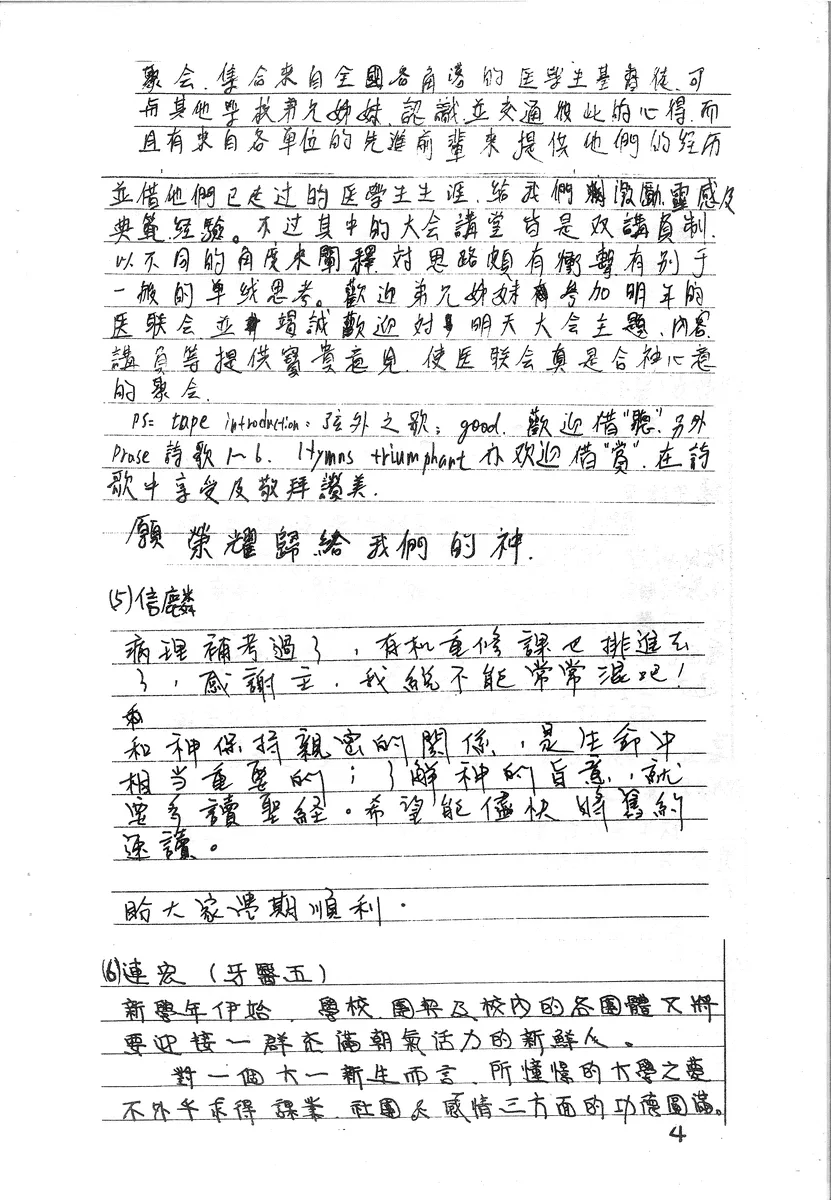 聚会.集合來自全國各角落的医学生基督徒.可
与其他学校弟兄姊妹.認識並交通彼此的心得.而
且有來自各單位的先進前輩來提供他們的经历
並借他們已走过的医學生生涯.給我們激勵.靈感及
典範经驗。不过其中的大会講堂皆是双講員制.
以不同的角度來闡釋.对思路頗有衝擊有别于
一般的单线思考。歡迎弟兄姊妹參加明年的
医联会並竭誠歡迎对明天大会主題、內容.
講員等提供寶貴意見.使医联会真是合神心意
的聚会.
PS= tape introduction:弦外之歌; good. 歡迎借"聽".另外
Prase 詩歌1~6. Hymns triumphant 亦欢迎借"賞".在詩
歌中享受及敬拜讚美.
願 榮耀歸給我們的神.
(5)信麟
病理補考過了,有机重修課也排進去
了,感謝主.我総不能常常混吧!
和神保持親密的関係,是生命中
相当重要的;了解神的旨意,就
要多讀聖経。希望能儘快將舊約
速讀。
盼大家學期順利.
(6)連宏(牙醫五)
新學年伊始.學校.團契及校內的各團體又將
要迎接一群充滿朝氣活力的新鮮人。
對一個大一新生而言.所憧憬的大學之夢
不外乎求得課業.社團及感情三方面的功德圓滿。
4